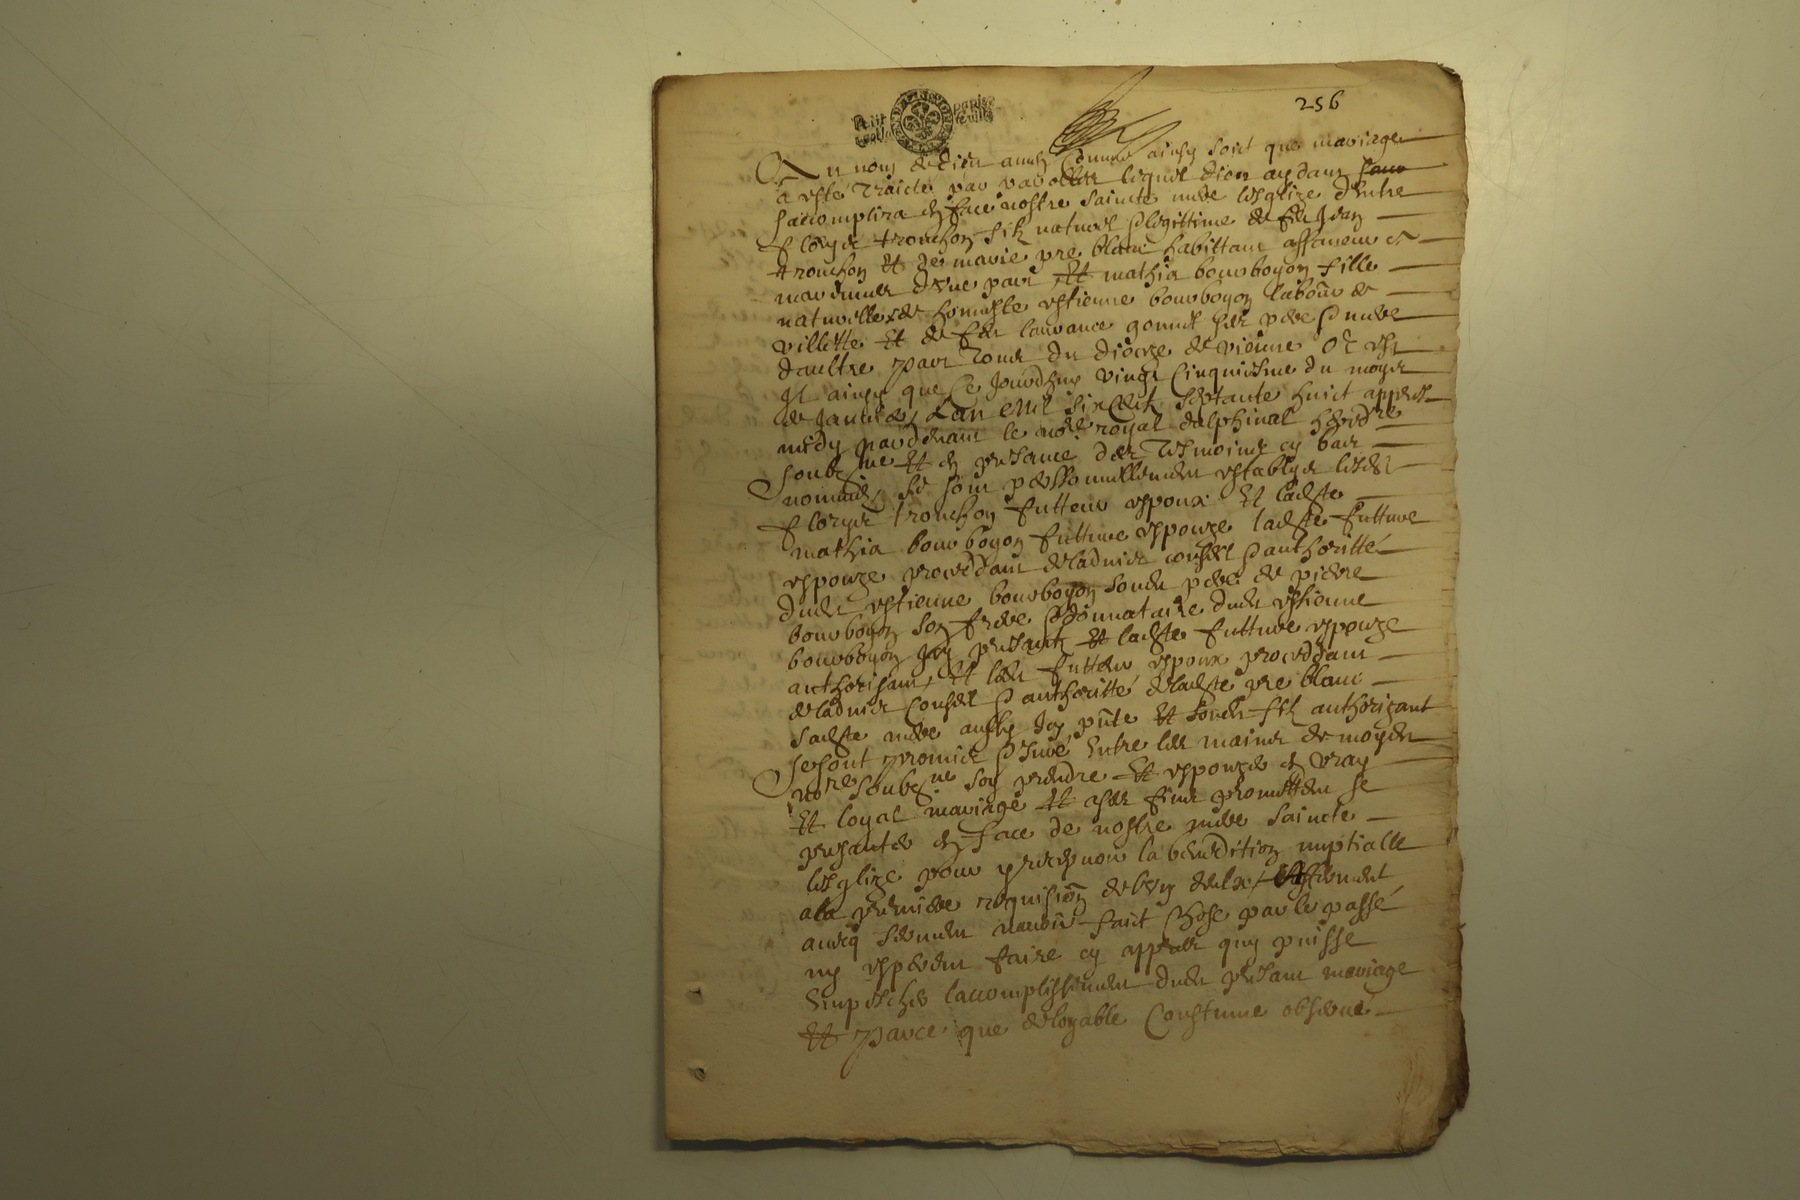 256
Au nom de dieu amen Comme ainsy soict que mariage
a esté traicté par parolles lequel dieu aydant
saccomplira en face nostre saincte mere lesglize dentre
floryer tronchon filz naturel & legittime de feu Jean
tronchon et de marie pre blanc habittant
dune part Et mathia bourbogon fille
naturelle de honneste estienne bourbogon
villette Et de feu laurance ses pere & mere
daultre part tous du diocese de vienne Or est
Il ainsy que Ce Jourdhuy vingt Cinquiesme du moys
de Janvier Lan Mil six Cents septante huict appres
midy pardevant le no.re royal dalphinal
soubz.ne Et en presance des tesmoings cy bas
nommes se sont personnellement establys lesd.
floryer tronchon futteur espoux Et lad.te
mathia bourbogon futture espouze lad.te futture
espouze proceddant de ladvis conseil & authoritté
dud. estienne bourbogon sond. pere de pierre
bourbogon son frere & donnataire dud. estienne
bourbogon Icy presantz Et lad.te futture espouze
authorisant Et led. futteur espoux proceddant
de ladvis conseil & authoritté de lad.te pre blanc
sad.te mere aussy Icy p.nte Et sond. filz authorizant
se sont promis & Juré Entre les mains de moyd.
no.re soubz.ne soy prendre Et espouzer en vray
Et loyal mariage Et a ses fins promettent se
presanter en face de nostre mere saincte
lesglize pour y recepvoir la benedition nuptialle
a la premiere requisi.on de lun deulx
avecq serment navoir faict chose par le passé
ny esperent faire cy appres quy puisse
Empescher laccomplissement dud. presant mariage
Et parce que de loyable Coustume observé